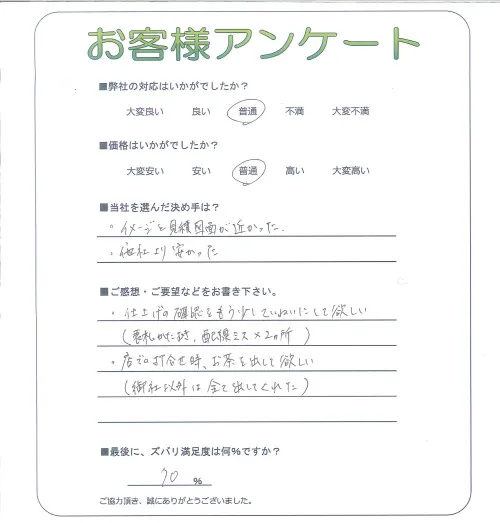 お客様アンケート
■弊社の対応はいかがでしたか？
大変良い 良い 普通 不満 大変不満
■価格はいかがでしたか？
大変安い 安い 普通 高い 大変高い
■当社を選んだ決め手は？
・イメージと見積図面が近かった.
・他社より安かった
■ご感想・ご要望などをお書き下さい。
・仕上げの確認をもう少していねいにして欲しい
(表札かたむき, 配線ミス×2ヵ所)
・店での打合せ時、お茶を出して欲しい
(御社以外は全て出してくれた)
■最後に、ズバリ満足度は何%ですか？
70 %
ご協力頂き、誠にありがとうございました。